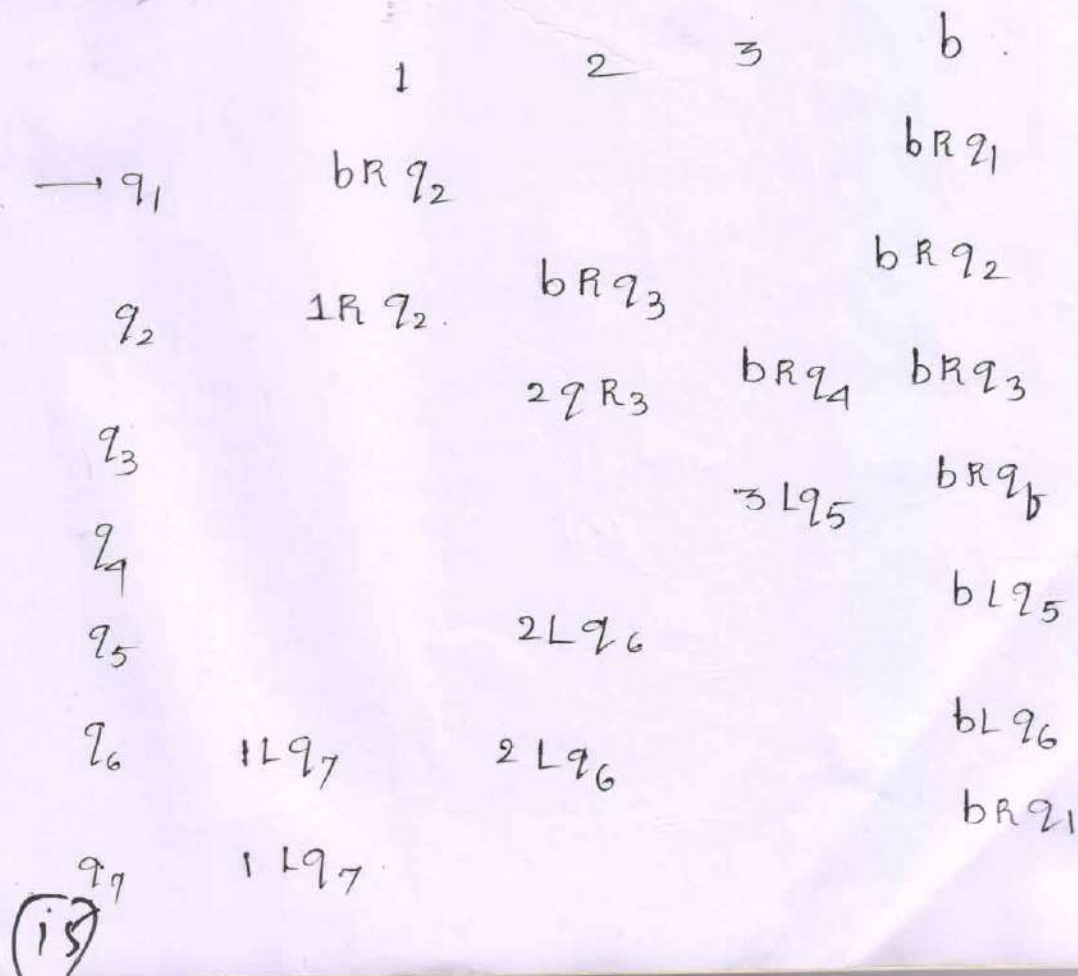 1 2 3 b
→ q1 bRq2 bRq1
q2 1Rq2 bRq3 bRq2
q3 2qR3 bRq4 bRq3
q4 3Lq5 bRqb
q5 2Lq6 bLq5
q6 1Lq7 2Lq6 bLq6
q7 1Lq7 bRq1